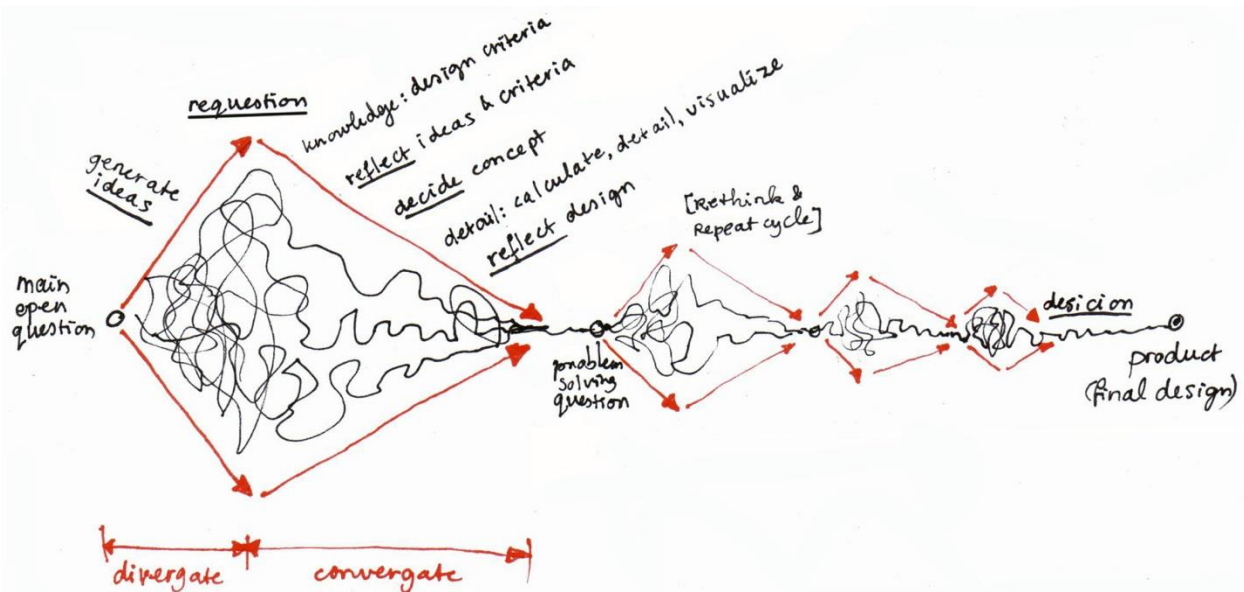 requestion
generate
ideas
knowledge: design criteria
reflect ideas & criteria
decide concept
detail: calculate, detail, visualize
reflect design
main
open
question
[Rethink &
Repeat cycle]
problem
solving
question
desicion
product
(final design)
divergate
convergate